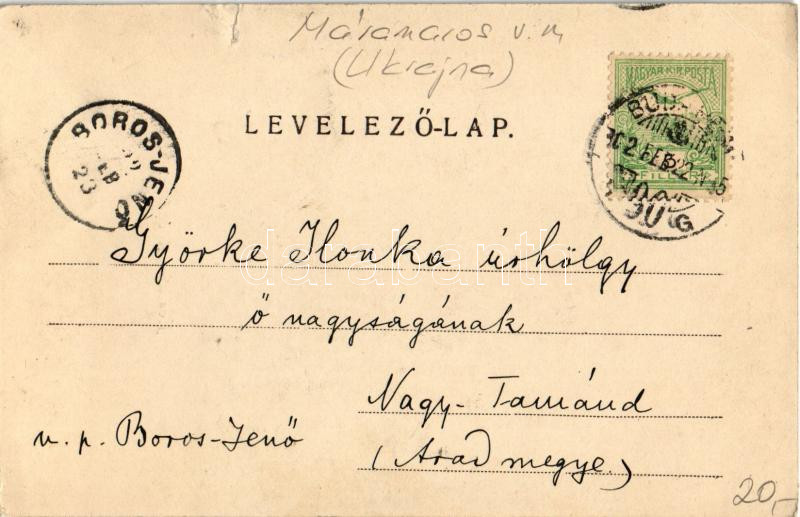 Máramaros v.m
(Ukrajna)
LEVELEZŐ-LAP.
MAGYAR KIR. POSTA
FILLÉR
BUDAPEST
902 FEB 22
BOROS-JENŐ
902 FEB 23
Györke Ilonka úrhölgy
ő nagyságának
Nagy-Tamánd
u. p. Boros-Jenő
(Arad megye.)
darabanth
20,-